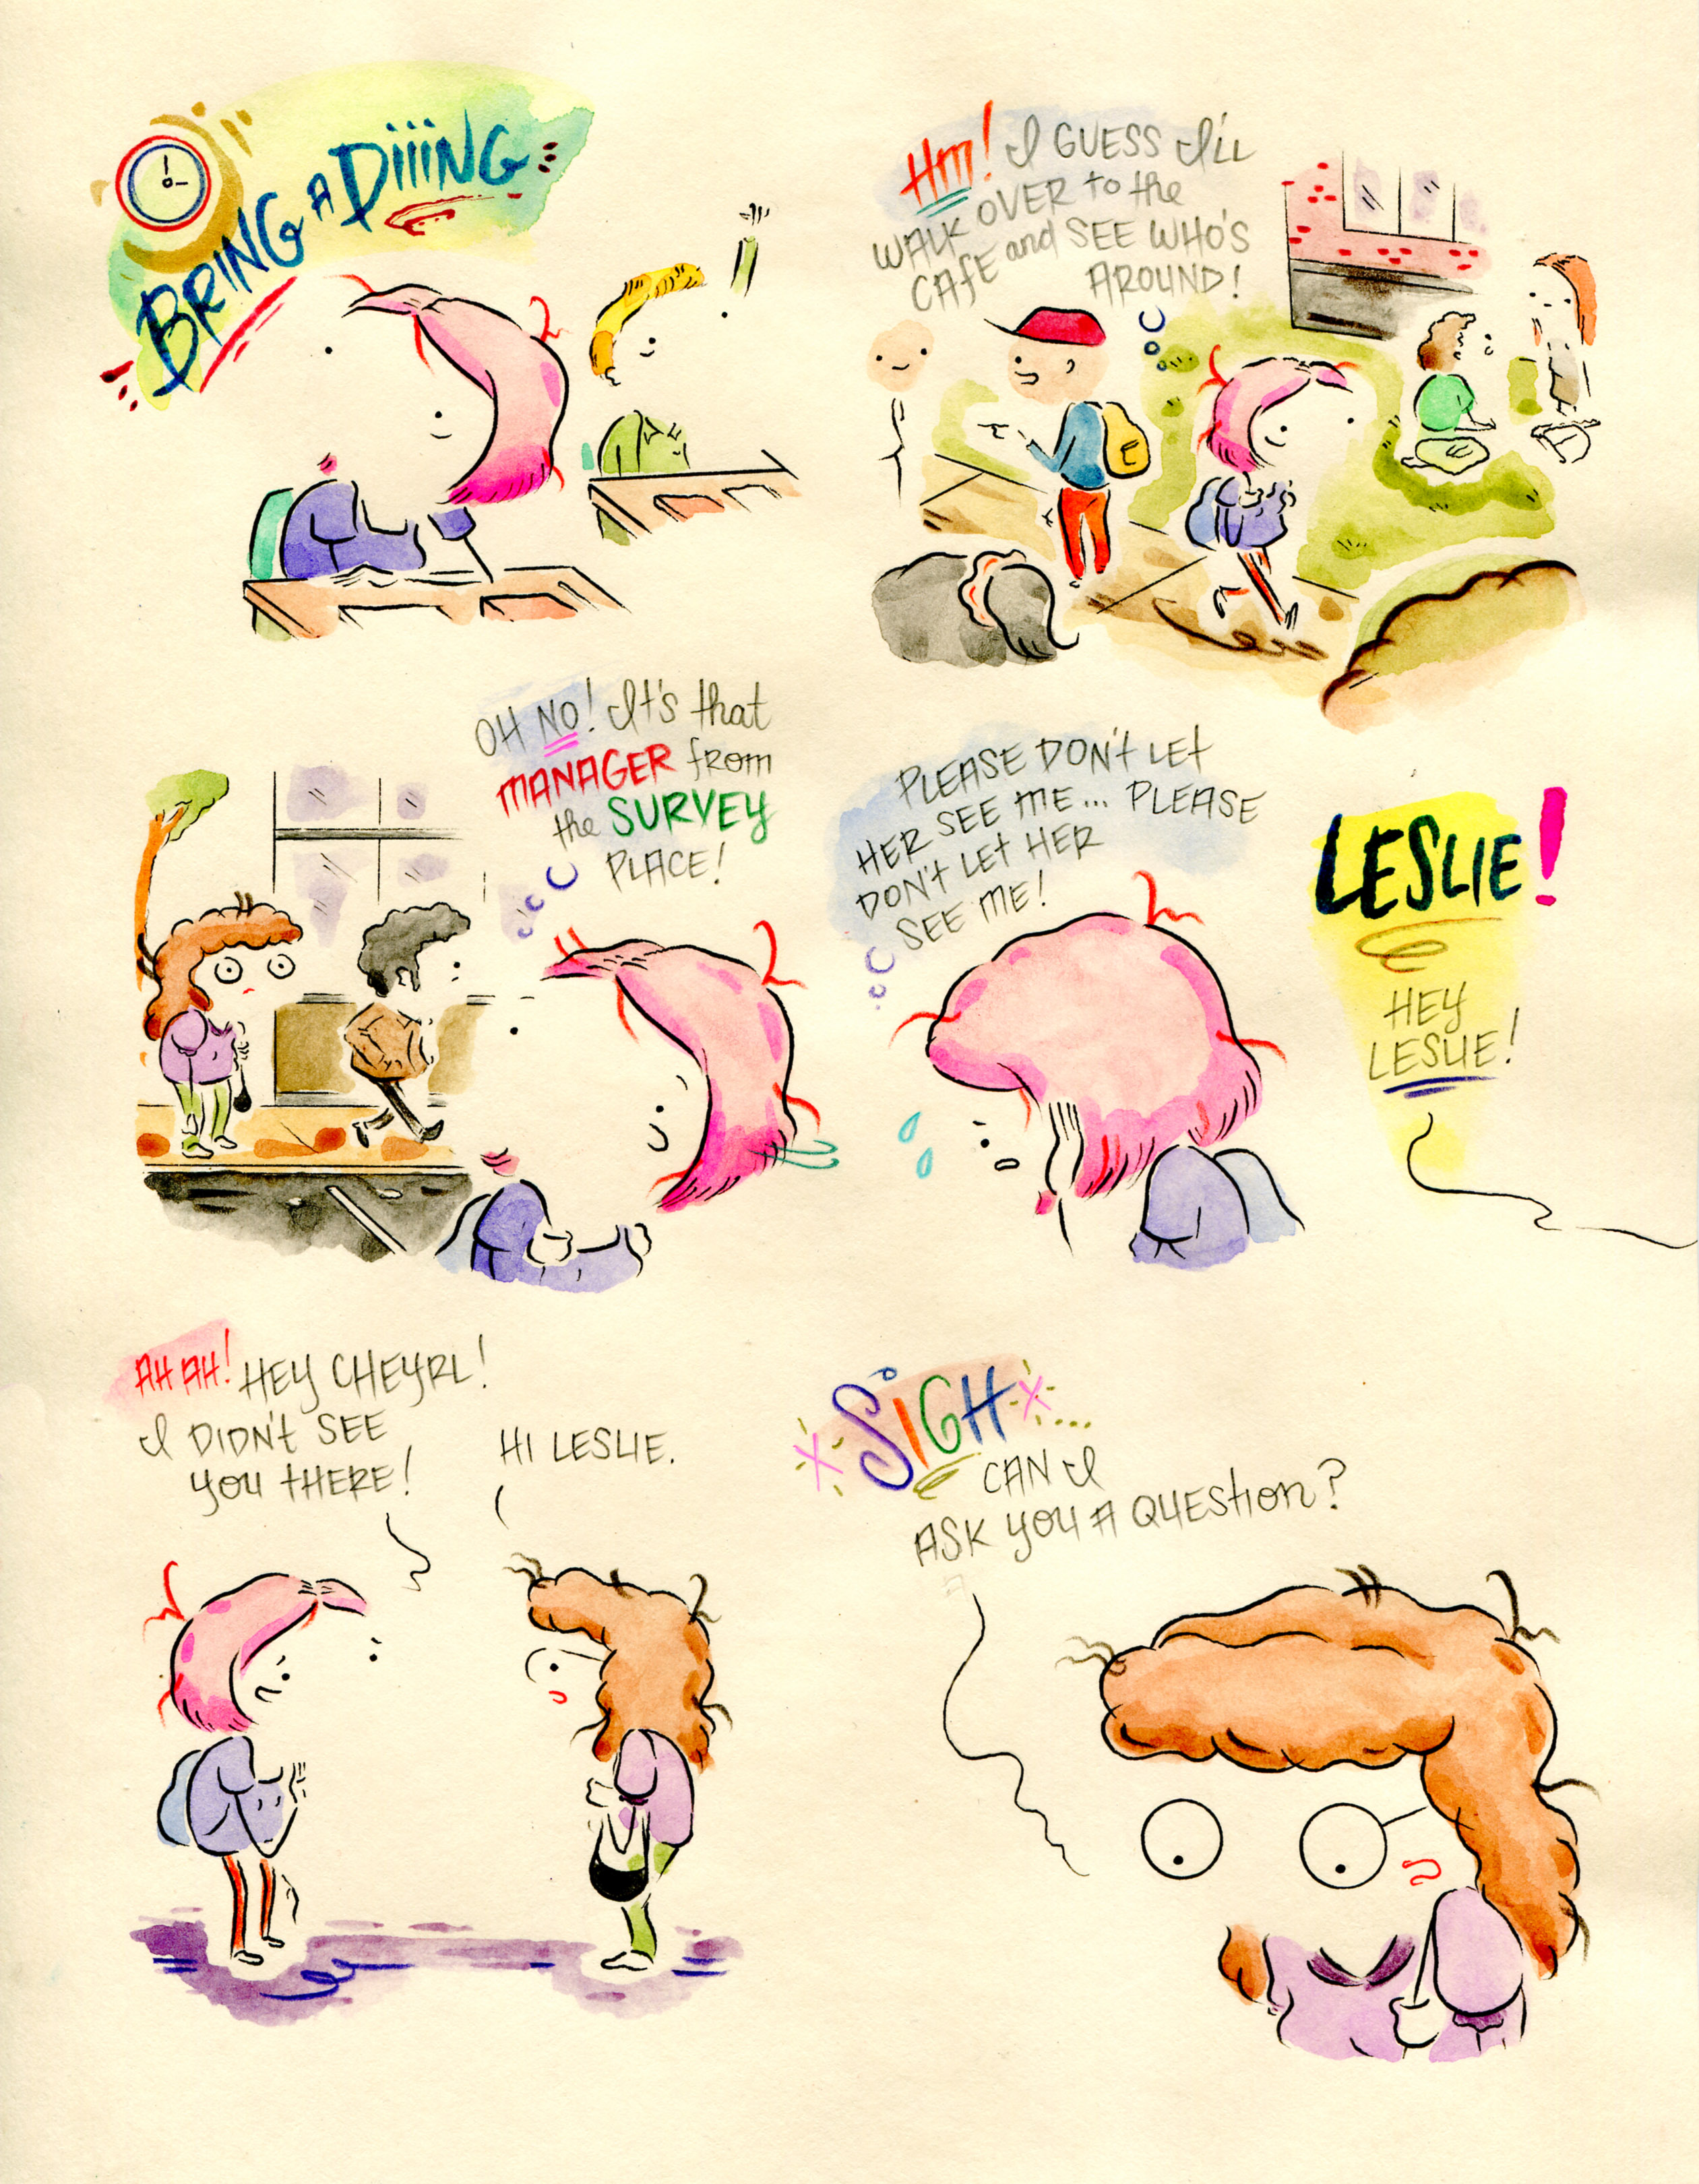 BRING A DiiiNG
Hm! I GUESS I'LL
WALK OVER to the
CAFE and SEE WHO'S
AROUND!
OH NO! It's that
MANAGER from
the SURVEY
PLACE!
PLEASE DON't LEt
HER SEE ME... PLEASE
DON't LEt HER
SEE ME!
LESLIE!
HEY
LESLIE!
AH AH! HEY CHEYRL!
I DIDN't SEE
you tHERE!
HI LESLIE.
SiGH...
CAN I
ASK you A QUEStion?